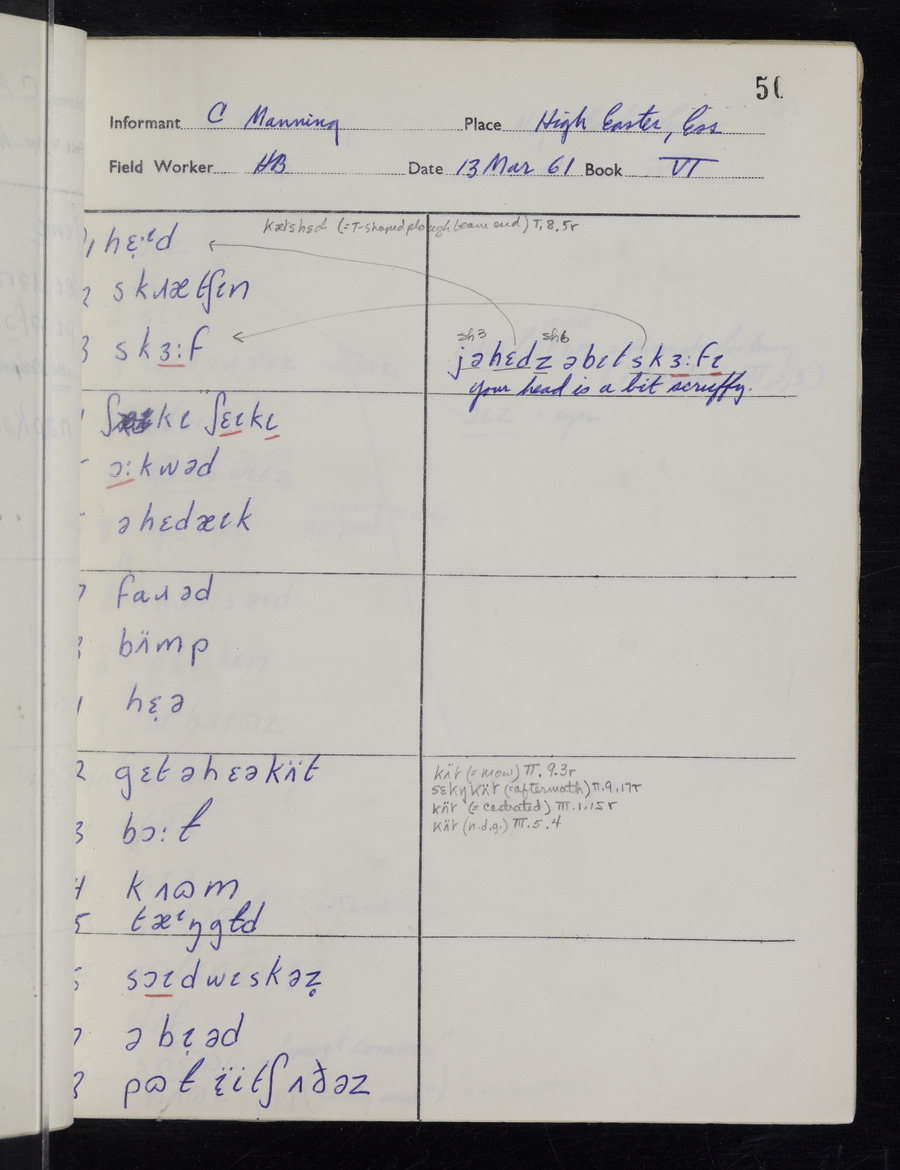 50
Informant C Manning Place High Easter, Ess
Field Worker HB Date 13 Mar 61 Book VI
kætshɛd (=T-shaped plough beam end) V.8.5r
1 hɛ̣·ɪd
2 skɹætʃɪn
sh3 sh6
3 skɜ:f
jəhɛdz əbɪt skɜ:fɪ
your head is a bit scruffy.
kɪ ʃɛɪkɪ
ɔ:kwəd
əhɛdæɪk
7 faɹəd
bʌ̈mp
hɛ̣ə
2 gɛtəhɛəkʌ̈t
kʌ̈t (=mow) II.9.3r
sɛkṇ kʌ̈t (=aftermath) II.9.17r
kʌ̈t (=castrated) III.1.15r
kʌ̈t (n.d.g.) III.5.4
3 bɔ:ɫ
4 kɹɷm
5 tæɪŋgɫd
sɔɪdwɪskəz̥
7 ə bɪ̣əd